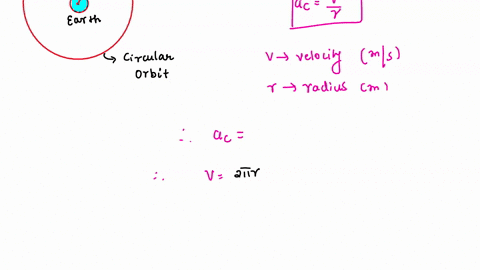 Earth
Circular
Orbit
a_c = v/r
V → velocity (m/s)
r → radius (m)
∴ a_c =
∴ V = 2πr